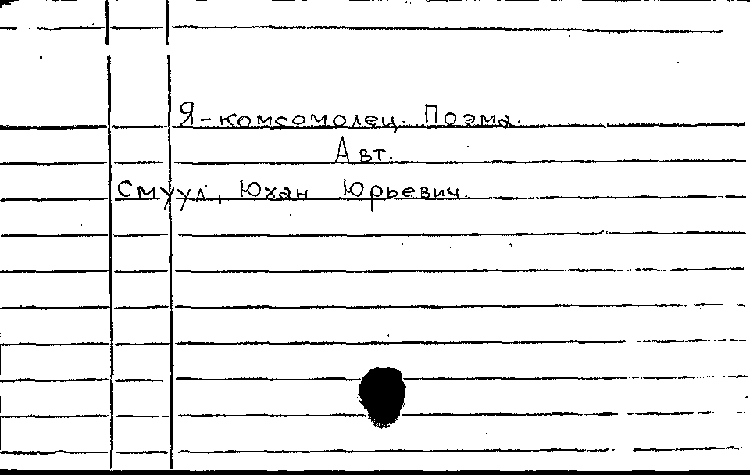 Я-комсомолец. Поэма.
Авт.
Смуул, Юхан Юрьевич.